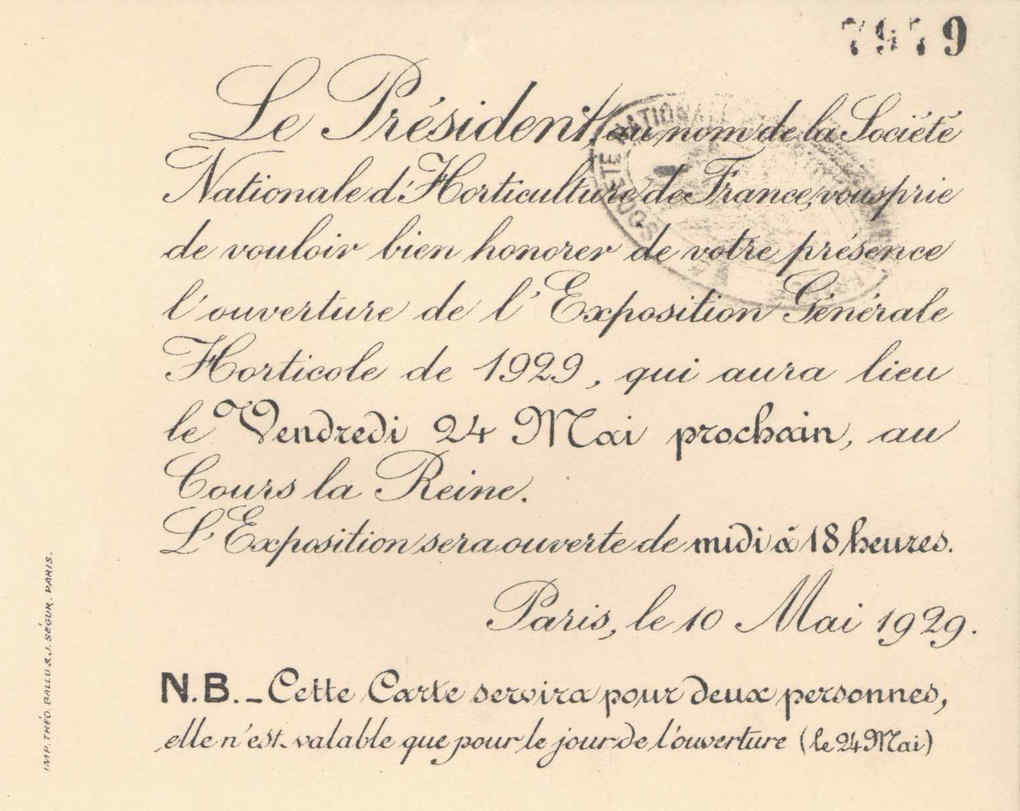 7979
Le Président, au nom de la Société
Nationale d'Horticulture de France, vous prie
de vouloir bien honorer de votre présence
l'ouverture de l'Exposition Générale
Horticole de 1929, qui aura lieu
le Vendredi 24 Mai prochain, au
Cours la Reine.
L'Exposition sera ouverte de midi à 18 heures.
Paris, le 10 Mai 1929.
N.B. _ Cette Carte servira pour deux personnes,
elle n'est valable que pour le jour de l'ouverture (le 24 Mai)
SOCIÉTÉ NATIONALE
IMP. THÉO. BALLU & J. SÉGUR. PARIS.